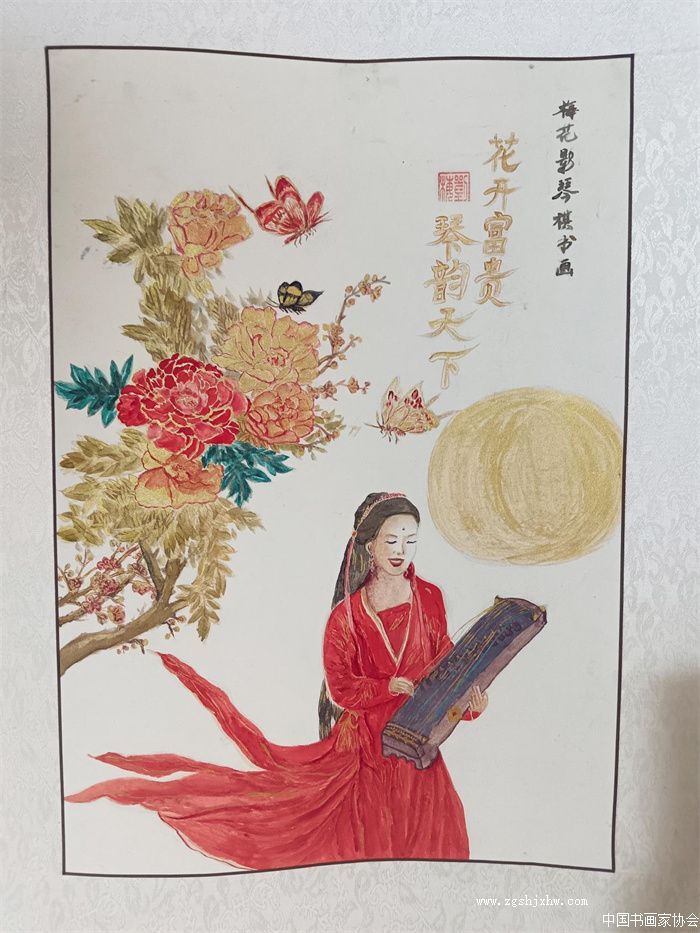 梅花影琴棋书画
花开富贵
琴韵天下
www.zgshjxhw.com
中国书画家协会